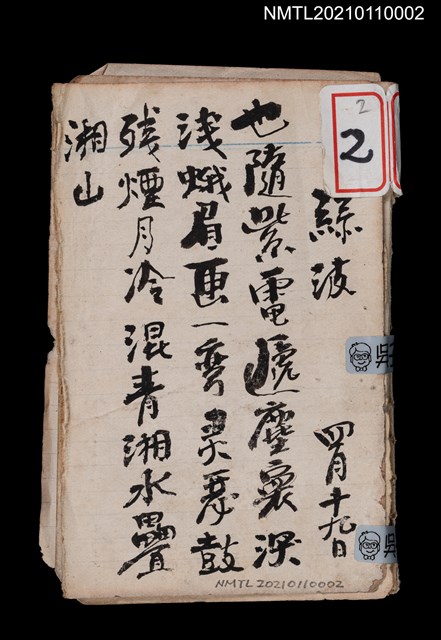 NMTL20210110002
2
2
綠波
四月十九日
也隨紫電遞塵寰深
浅蛾眉画一弯灵瑟鼓
残煙月冷混青湘水疊
湘山
吳
吳
NMTL20210110002